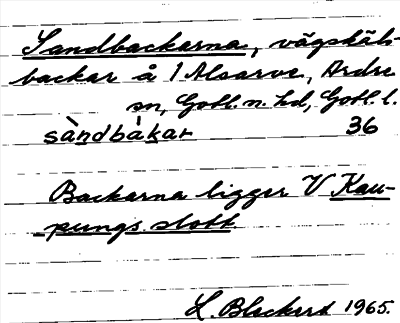 Sandbackarna, vägskäls-
backar å 1 Alsarve, Ardre
sn, Gotl. n. hd, Gotl. l.
sàndbàkar 36
Backarna ligger V Kau-
pungs slott
L. Bleckert 1965.